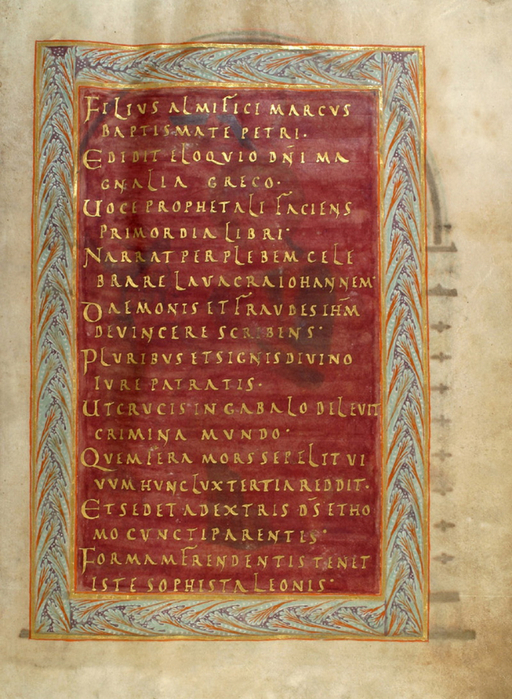 FILIVS ALMIFICI MARCVS
BAPTISMATE PETRI·
EDIDIT ELOQVIO DN̄I MA
GNALIA GRECO·
UOCE PROPHETALI FACIENS
PRIMORDIA LIBRI·
NARRAT PER PLEBEM CELE
BRARE LAVACRA IOHANNEM·
DAEMONIS ET FRAVDES IHM̄
DEVINCERE SCRIBENS·
PLVRIBVS ET SIGNIS DIVINO
IVRE PATRATIS·
UT CRVCIS IN GABALO DELEVIT
CRIMINA MVNDO·
QVEM FERA MORS SEPELIT VI
VVM HVNC LVX TERTIA REDDIT·
ET SEDET AD EXTRIS DS̄ ET HO
MO CVNCTIPARENTIS·
FORMAM FRENDENTIS TENET
ISTE SOPHISTA LEONIS·